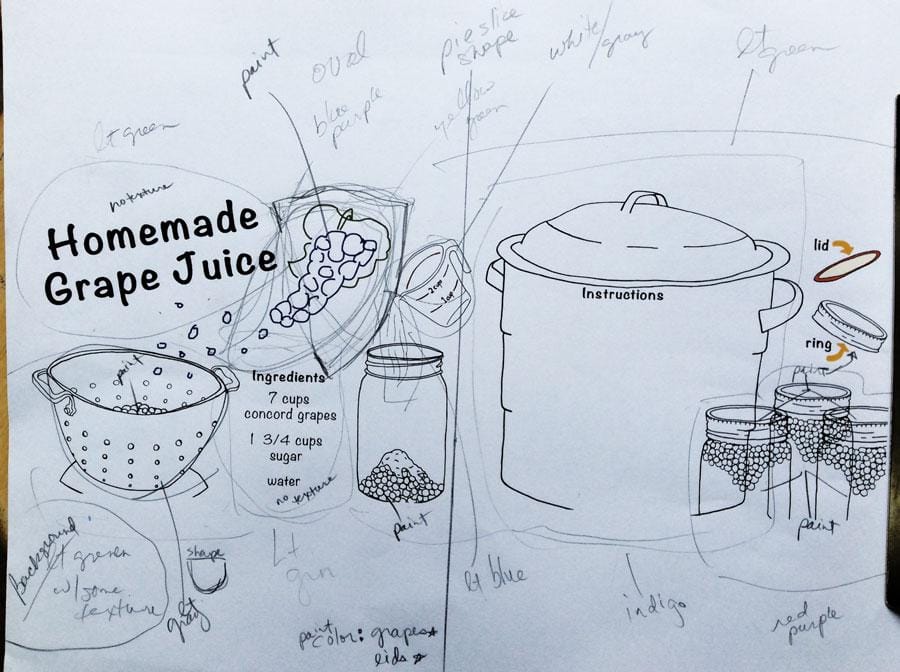 paint
oval
blue
purple
pie slice
shape
yellow
green
white/gray
lt green
lt green
no texture
Homemade
Grape Juice
2 cup
1 cup
paint
Ingredients
7 cups
concord grapes
1 3/4 cups
sugar
water
no texture
Instructions
lid
ring
paint
paint
paint
background
lt green
w/some
texture
gray
shape
Lt
grn
lt blue
indigo
red
purple
paint
color: grapes
lids